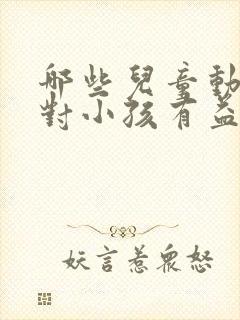 哪些兒童動
對小孩有益
妖言惹眾怒